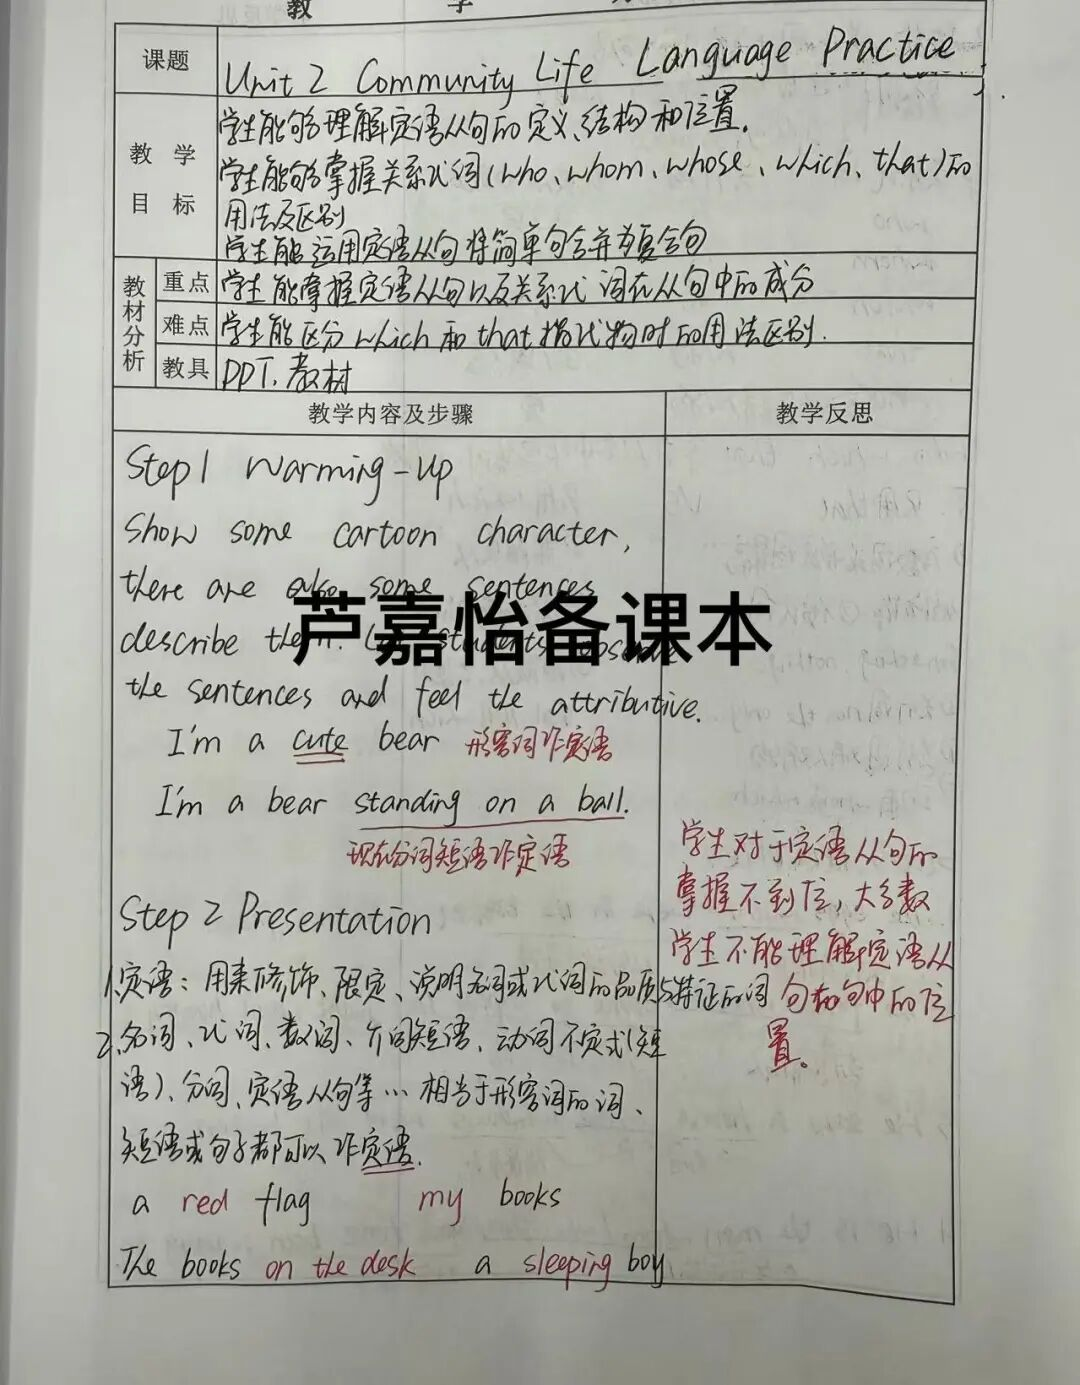 教 学
课题
Unit 2 Community Life Language Practice
教 学
目 标
学生能够理解定语从句的定义、结构和位置.
学生能够掌握关系代词(who、whom、whose、which、that)的
用法及区别
学生能运用定语从句将简单句合并为复合句
教材分析
重点
学生能掌握定语从句以及关系代词在从句中的成分
难点
学生能区分which和that指代物时的用法区别.
教具
PPT、教材
教学内容及步骤
教学反思
Step1 Warming-up
Show some cartoon character,
there are also some sentences
describe them. Let students observe
芦嘉怡备课本
the sentences and feel the attributive.
I'm a cute bear 形容词作定语
I'm a bear standing on a ball.
现在分词短语作定语
Step 2 Presentation
1.定语：用来修饰、限定、说明名词或代词的品质与特征的词
2.名词、代词、数词、介词短语、动词不定式(短
语)、分词、定语从句等…相当于形容词的词、
短语或句子都可以作定语.
a red flag my books
The books on the desk a sleeping boy
学生对于定语从句的
掌握不到位,大多数
学生不能理解定语从
句在句中的位
置。